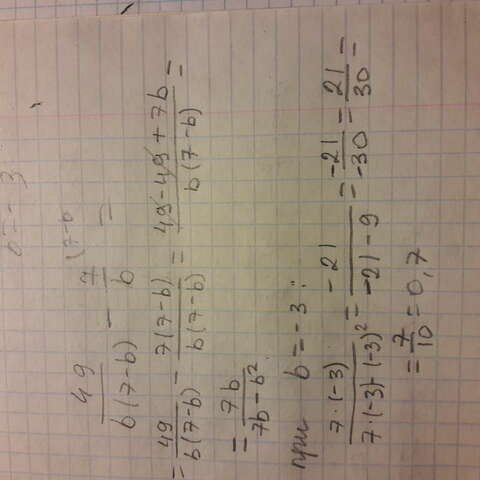 b = - 3
49/b(7-b) - 7/b (7-b =
= 49/b(7-b) - 7(7-b)/b(7-b) = 49-49+7b/b(7-b) =
= 7b/7b-b²
при b = -3 :
7·(-3)/7·(-3)-(-3)² = -21/-21-9 = -21/-30 = 21/30 =
= 7/10 = 0,7